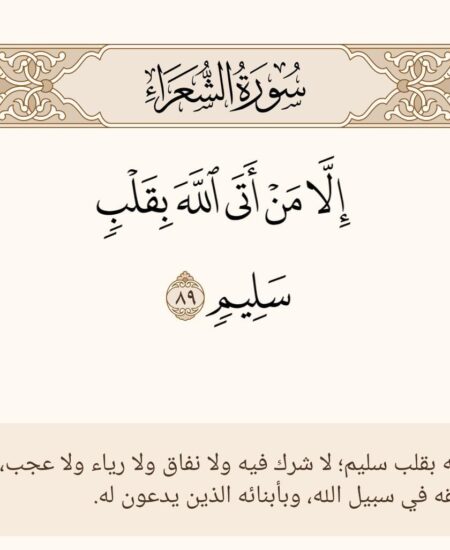 سُورَةُ الشُّعَرَاءِ
إِلَّا مَنْ أَتَى ٱللَّهَ بِقَلْبٍ
سَلِيمٍ ٨٩
بقلب سليم؛ لا شرك فيه ولا نفاق ولا رياء ولا عجب،
في سبيل الله، وبأبنائه الذين يدعون له.